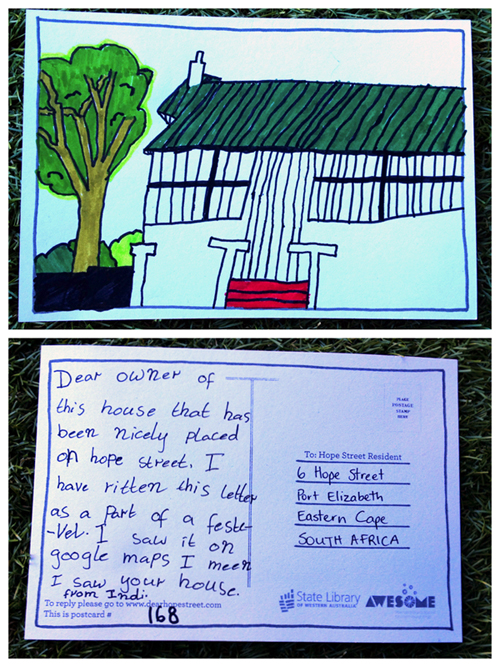 Dear owner of
this house that has
been nicely placed
on hope street. I
have ritten this letter
as a part of a feste
-vel. I saw it on
google maps I meen
I saw your house.
from Indi.
To reply please go to www.dearhopestreet.com
This is postcard # 168
PLACE
POSTAGE
STAMP
HERE
To: Hope Street Resident
6 Hope Street
Port Elizabeth
Eastern Cape
SOUTH AFRICA
State Library
OF WESTERN AUSTRALIA
AWESOME